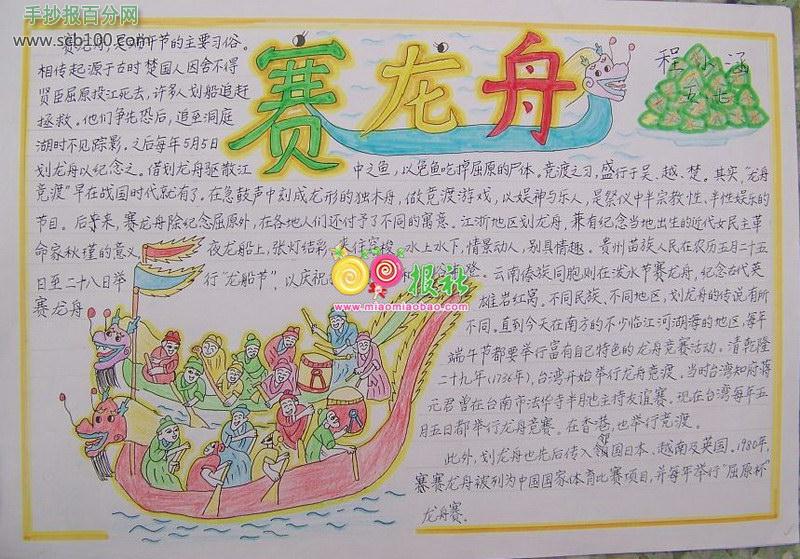 手抄报百分网
www.scb100.com
赛龙舟
程小涵
五.七
赛龙舟,是端午节的主要习俗。
相传起源于古时楚国人因舍不得
贤臣屈原投江死去,许多人划船追赶
拯救。他们争先恐后,追至洞庭
湖时不见踪影,之后每年5月5日
划龙舟以纪念之。借划龙舟驱散江中之鱼,以免鱼吃掉屈原的尸体。竞渡之习,盛行于吴、越、楚。其实,“龙舟
竞渡”早在战国时代就有了。在急鼓声中刻成龙形的独木舟,做竞渡游戏,以娱神与乐人,是祭仪中半宗教性、半性娱乐的
节目。后来,赛龙舟除纪念屈原外,在各地人们还付予了不同的寓意。江浙地区划龙舟,兼有纪念当地出生的近代女民主革
命家秋瑾的意义,夜龙船上,张灯结彩,来往穿梭,水上水下,情景动人,别具情趣。贵州苗族人民在农历五月二十五
日至二十八日举行“龙船节”,以庆祝 云南傣族同胞则在泼水节赛龙舟,纪念古代英
赛龙舟 雄岩红窝。不同民族、不同地区,划龙舟的传说有所
不同。直到今天在南方的不少临江河湖海的地区,每年
端午节都要举行富有自己特色的龙舟竞赛活动。清乾隆
二十九年(1736年),台湾开始举行龙舟竞渡。当时台湾知府蒋
元君曾在台南市法华寺半月池主持友谊赛。现在台湾每年五
月五日都举行龙舟竞赛。在香港,也举行竞渡。
此外,划龙舟也先后传入邻国日本、越南及英国。1980年,
赛龙舟被列为中国国家体育比赛项目,并每年举行“屈原杯”
龙舟赛。
报社
www.miaomiaobao.com